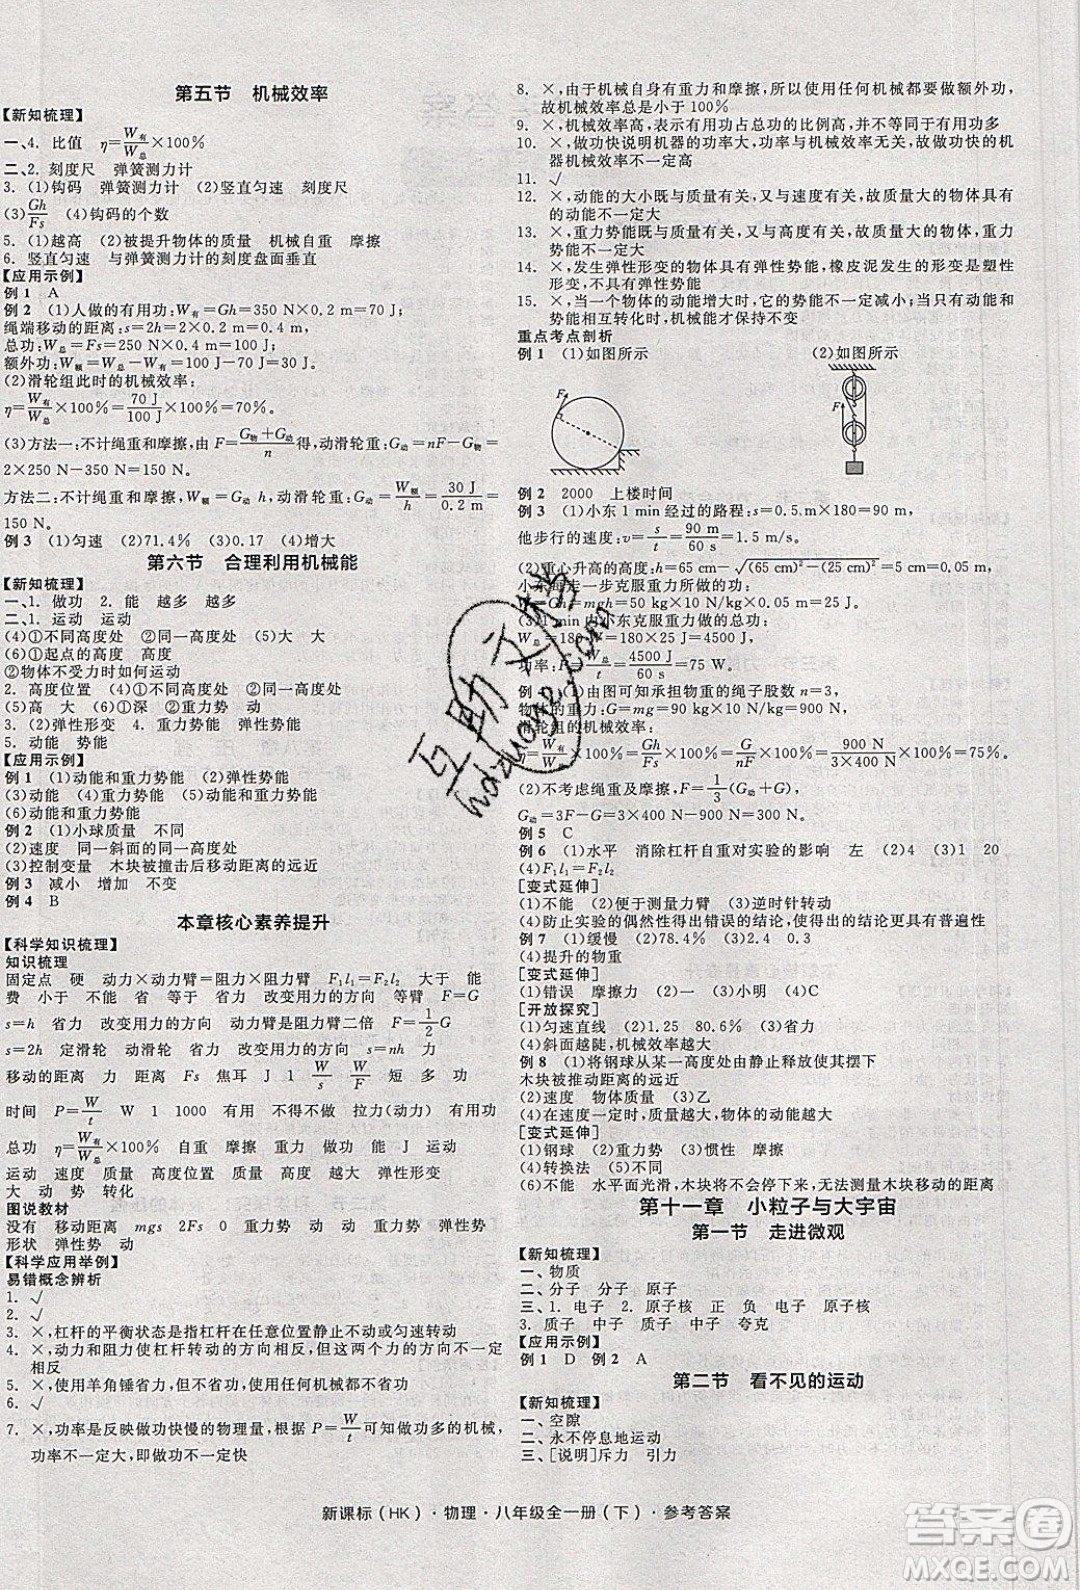 第五节　机械效率
【新知梳理】
一、4. 比值　η=W有/W总×100%
二、2. 刻度尺　弹簧测力计
3. (1)钩码　弹簧测力计　(2)竖直匀速
(3)Gh/Fs　(4)钩码的个数
5. (1)越高　(2)被提升物体的质量　机械自重　摩擦
6. 竖直匀速　与弹簧测力计的刻度盘面垂直
【应用示例】
例 1　A
例 2　(1)人做的有用功:W有=Gh=350 N×0.2 m=70 J;
绳端移动的距离:s=2h=2×0.2 m=0.4 m,
总功:W总=Fs=250 N×0.4 m=100 J,
额外功:W额=W总-W有=100 J-70 J=30 J;
(2)滑轮组此时的机械效率:
η=W有/W总×100%=70 J/100 J×100%=70%;
(3)方法一:不计绳重和摩擦,由 F=(G物+G动)/n得,动滑轮重:G动=nF-G物=
2×250 N-350 N=150 N。
方法二:不计绳重和摩擦,W额=G动 h,动滑轮重:G动=W额/h=30 J/0.2 m=
150 N。
例 3　(1)匀速　(2)71.4%　(3)0.17　(4)增大
第六节　合理利用机械能
【新知梳理】
一、1. 做功　2. 能　越多　越多
二、1. 运动　运动
(4)①不同高度处　②同一高度处　(5)大　大
(6)①起点的高度　高度
②物体不受力时如何运动
2. 高度位置　(4)①大　②同一高度处
(5)高　大　(6)①深　②重力势
3. (2)弹性形变　4. 重力势能　弹性势能
5. 动能　势能
【应用示例】
例 1　(1)动能和重力势能　(2)弹性势能
(3)动能　(4)重力势能　(5)动能和重力势能
(6)动能和重力势能
例 2　(1)小球质量　不同
(2)速度　同一斜面的同一高度处
(3)控制变量　木块被撞击后移动距离的远近
例 3　减小　增加　不变
例 4　B
本章核心素养提升
【科学知识梳理】
知识梳理
固定点　硬　动力×动力臂=阻力×阻力臂　F₁l₁=F₂l₂　大于　能
费　小于　不能　省　等于　省力　改变用力的方向　等臂　F=G
s=h　省力　改变用力的方向　动力臂是阻力臂二倍　F=1/2G
s=2h　定滑轮　动滑轮　省力　改变用力的方向　s=nh　力
移动的距离　力　距离　Fs　焦耳　J　1　W/s　W/F　短　多　多
时间　P=W/t　W　1　1000　有用　不得不做　拉力(动力)　有用
总功　η=W有/W总×100%　自重　摩擦　重力　做功　能　J　运动
运动　速度　质量　高度位置　质量　高度　越大　弹性形变
大　动　势　转化
图说教材
没有　移动距离　mgs　2Fs　0　重力势　动　动　重力势　弹性势
形状　弹性势　动
【科学应用举例】
易错概念辨析
1. √
2. √
3. ×,杠杆的平衡状态是指杠杆在任意位置静止不动或匀速转动
4. ×,动力和阻力使杠杆转动的方向相反,动力和阻力的方向不一定
相反
5. ×,使用羊角锤省力,但不能说使用任何机械都不省力
6. √
7. ×,功率是反映做功快慢的物理量,根据 P=W/t可知做功多的机械,
功率不一定大,即做功不一定快
8. ×,由于机械自身有重力和摩擦,所以使用任何机械都要做额外功,
故机械效率总是小于 100%
9. ×,机械效率高,表示有用功占总功的比例高,并不表示有用功多
10. ×,做功快说明机器的功率大,功率与机械效率无关,故做功快的机
器机械效率不一定高
11. √
12. ×,动能的大小既与质量有关,又与速度有关,故质量大的物体具有
的动能不一定大
13. ×,重力势能既与质量有关,又与高度有关,故质量大的物体重力势
能不一定大
14. ×,发生弹性形变的物体具有弹性势能,橡皮泥发生的形变是塑性
形变,不具有弹性势能
15. ×,当一个物体的动能增大时,它的势能不一定减小;当只有动能和
势能相互转化时,机械能才保持不变
重点考点剖析
例 1　(1)如图所示　(2)如图所示
F
F
例 2　2000　上楼时间
例 3　(1)小东 1 min 经过的路程:s=0.5 m×180=90 m,
他步行的速度:v=s/t=90 m/60 s=1.5 m/s。
(2)重心升高的高度:h=65 cm-√(65 cm)²-(25 cm)²=5 cm=0.05 m,
小东每走一步克服重力所做的功:
W=Gh=mgh=50 kg×10 N/kg×0.05 m=25 J。
(3)1 min 小东克服重力做的总功:
W总=180W=180×25 J=4500 J,
功率:P=W总/t=4500 J/60 s=75 W。
例 4　(1)由图可知承担物重的绳子股数 n=3,
物体的重力:G=mg=90 kg×10 N/kg=900 N,
滑轮组的机械效率:
η=W有/W总×100%=Gh/Fs×100%=G/nF×100%=900 N/3×400 N×100%=75%。
(2)不考虑绳重及摩擦,F=1/3(G动+G),
G动=3F-G=3×400 N-900 N=300 N。
例 5　C
例 6　(1)水平　消除杠杆自重对实验的影响　左　(2)4　(3)1　20
(4)F₁l₁=F₂l₂
[变式延伸]
(1)不能　(2)便于测量力臂　(3)逆时针转动
(4)防止实验的偶然性得出错误的结论,使得出的结论更具有普遍性
例 7　(1)缓慢　(2)78.4%　(3)2.4　0.3
(4)提升的物重
[变式延伸]
(1)错误　摩擦力　(2)一　(3)小明　(4)C
[开放探究]
(1)匀速直线　(2)1.25　80.6%　(3)省力
(4)斜面越陡,机械效率越大
例 8　(1)将钢球从某一高度处由静止释放使其摆下
木块被推动距离的远近
(2)速度　质量　(3)乙
(4)在速度一定时,质量越大,物体的动能越大
[变式延伸]
(1)钢球　(2)重力势　(3)惯性　摩擦力
(4)转换法　(5)质量
(6)不能　水平面光滑,木块将不会停下来,无法测量木块移动的距离
第十一章　小粒子与大宇宙
第一节　走进微观
【新知梳理】
一、物质
二、分子　分子　原子
三、1. 电子　2. 原子核　正　负　电子　原子
3. 质子　中子　质子　中子　夸克
【应用示例】
例 1　D　例 2　A
第二节　看不见的运动
【新知梳理】
一、空隙
二、永不停息地运动
三、[说明]斥力　引力
新课标(HK)·物理·八年级全一册(下)·参考答案
互助文档
hdzuoye.com
答案圈
MXQE.COM